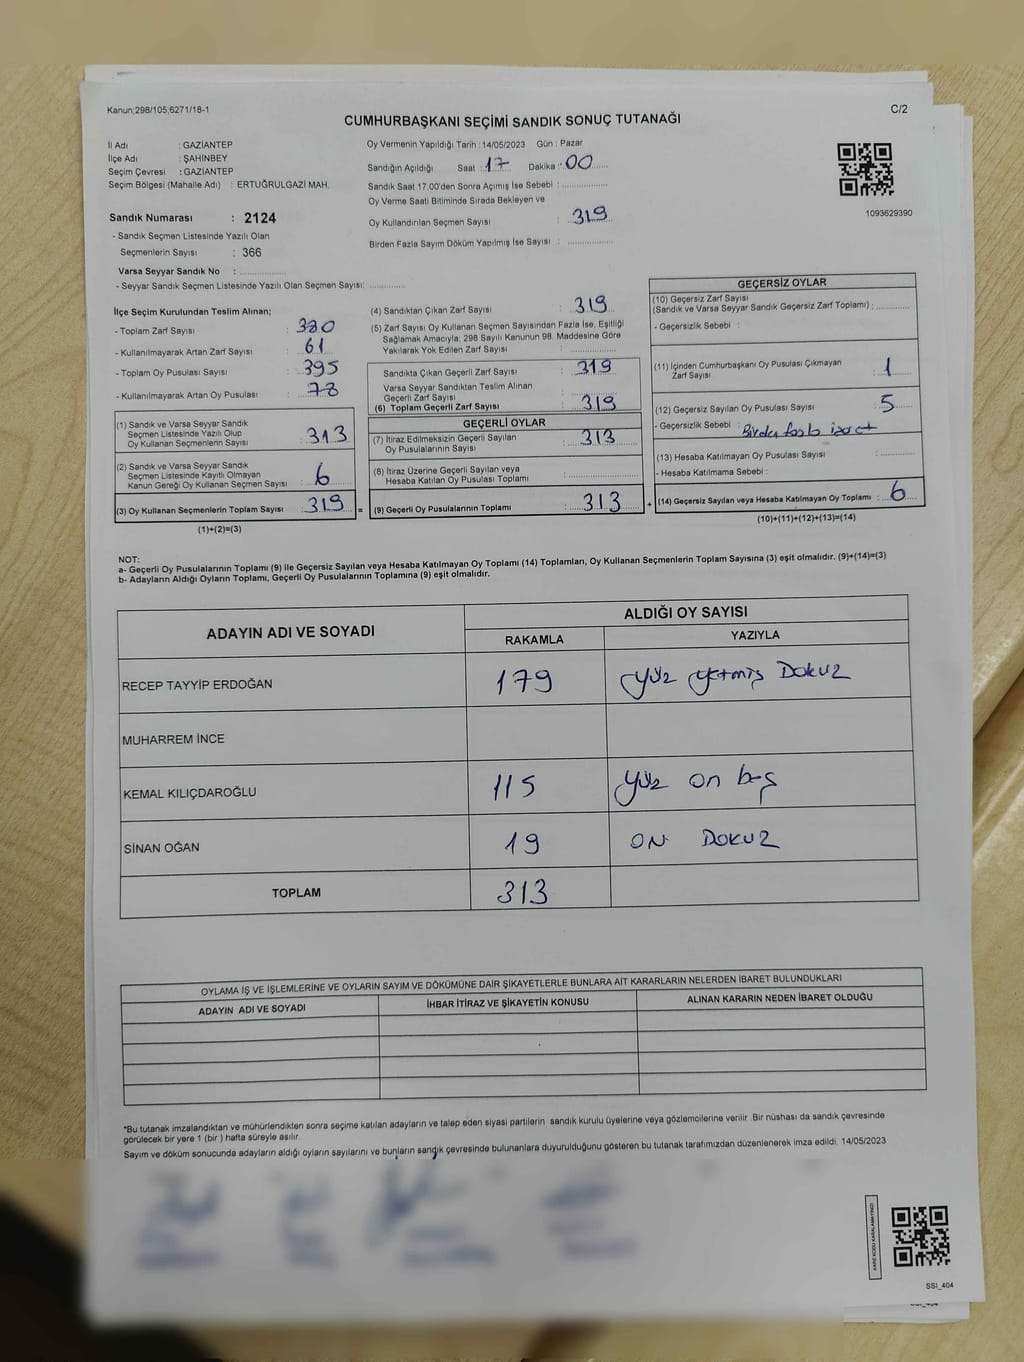 Kanun;298/105;6271/18-1
C/2
CUMHURBAŞKANI SEÇİMİ SANDIK SONUÇ TUTANAĞI
İl Adı : GAZİANTEP
İlçe Adı : ŞAHİNBEY
Seçim Çevresi : GAZİANTEP
Seçim Bölgesi (Mahalle Adı) : ERTUĞRULGAZİ MAH.
Oy Vermenin Yapıldığı Tarih : 14/05/2023 Gün : Pazar
Sandığın Açıldığı Saat : 17 Dakika : 00
Sandık Saat 17.00'den Sonra Açımış İse Sebebi :
Oy Verme Saati Bitiminde Sırada Bekleyen ve
Oy Kullandırılan Seçmen Sayısı : 319
Birden Fazla Sayım Döküm Yapılmış İse Sayısı :
1093629390
Sandık Numarası : 2124
- Sandık Seçmen Listesinde Yazılı Olan
Seçmenlerin Sayısı : 366
Varsa Seyyar Sandık No :
- Seyyar Sandık Seçmen Listesinde Yazılı Olan Seçmen Sayısı:
İlçe Seçim Kurulundan Teslim Alınan;
- Toplam Zarf Sayısı : 380
- Kullanılmayarak Artan Zarf Sayısı : 61
- Toplam Oy Pusulası Sayısı : 395
- Kullanılmayarak Artan Oy Pusulası : 78
(1) Sandık ve Varsa Seyyar Sandık
Seçmen Listesinde Yazılı Olup
Oy Kullanan Seçmenlerin Sayısı : 313
(2) Sandık ve Varsa Seyyar Sandık
Seçmen Listesinde Kayıtlı Olmayan
Kanun Gereği Oy Kullanan Seçmen Sayısı : 6
(3) Oy Kullanan Seçmenlerin Toplam Sayısı : 319 =
(1)+(2)=(3)
(4) Sandıktan Çıkan Zarf Sayısı : 319
(5) Zarf Sayısı Oy Kullanan Seçmen Sayısından Fazla İse, Eşitliği
Sağlamak Amacıyla; 298 Sayılı Kanunun 98. Maddesine Göre
Yakılarak Yok Edilen Zarf Sayısı :
Sandıkta Çıkan Geçerli Zarf Sayısı : 319
Varsa Seyyar Sandıktan Teslim Alınan
Geçerli Zarf Sayısı :
(6) Toplam Geçerli Zarf Sayısı : 319
GEÇERLİ OYLAR
(7) İtiraz Edilmeksizin Geçerli Sayılan
Oy Pusulalarının Sayısı : 313
(8) İtiraz Üzerine Geçerli Sayılan veya
Hesaba Katılan Oy Pusulası Toplamı :
(9) Geçerli Oy Pusulalarının Toplamı : 313 +
GEÇERSİZ OYLAR
(10) Geçersiz Zarf Sayısı
(Sandık ve Varsa Seyyar Sandık Geçersiz Zarf Toplamı) :
- Geçersizlik Sebebi :
(11) İçinden Cumhurbaşkanı Oy Pusulası Çıkmayan
Zarf Sayısı : 1
(12) Geçersiz Sayılan Oy Pusulası Sayısı : 5
- Geçersizlik Sebebi : Birden fazla
(13) Hesaba Katılmayan Oy Pusulası Sayısı :
- Hesaba Katılmama Sebebi :
(14) Geçersiz Sayılan veya Hesaba Katılmayan Oy Toplamı : 6
(10)+(11)+(12)+(13)=(14)
NOT:
a- Geçerli Oy Pusulalarının Toplamı (9) ile Geçersiz Sayılan veya Hesaba Katılmayan Oy Toplamı (14) Toplamları, Oy Kullanan Seçmenlerin Toplam Sayısına (3) eşit olmalıdır. (9)+(14)=(3)
b- Adayların Aldığı Oyların Toplamı, Geçerli Oy Pusulalarının Toplamına (9) eşit olmalıdır.
ADAYIN ADI VE SOYADI
ALDIĞI OY SAYISI
RAKAMLA YAZIYLA
RECEP TAYYİP ERDOĞAN 179 Yüz yetmiş Dokuz
MUHARREM İNCE
KEMAL KILIÇDAROĞLU 115 Yüz on beş
SİNAN OĞAN 19 ON DOKUZ
TOPLAM 313
OYLAMA İŞ VE İŞLEMLERİNE VE OYLARIN SAYIM VE DÖKÜMÜNE DAİR ŞİKAYETLERLE BUNLARA AİT KARARLARIN NELERDEN İBARET BULUNDUKLARI
ADAYIN ADI VE SOYADI İHBAR İTİRAZ VE ŞİKAYETİN KONUSU ALINAN KARARIN NEDEN İBARET OLDUĞU
*Bu tutanak imzalandıktan ve mühürlendikten sonra seçime katılan adayların ve talep eden siyasi partilerin sandık kurulu üyelerine veya gözlemcilerine verilir. Bir nüshası da sandık çevresinde
görülecek bir yere 1 (bir) hafta süreyle asılır.
Sayım ve döküm sonucunda adayların aldığı oyların sayılarını ve bunların sandık çevresinde bulunanlara duyurulduğunu gösteren bu tutanak tarafımızdan düzenlenerek imza edildi. 14/05/2023
KARE KODU KARALAMAYINIZ!
SSI_404